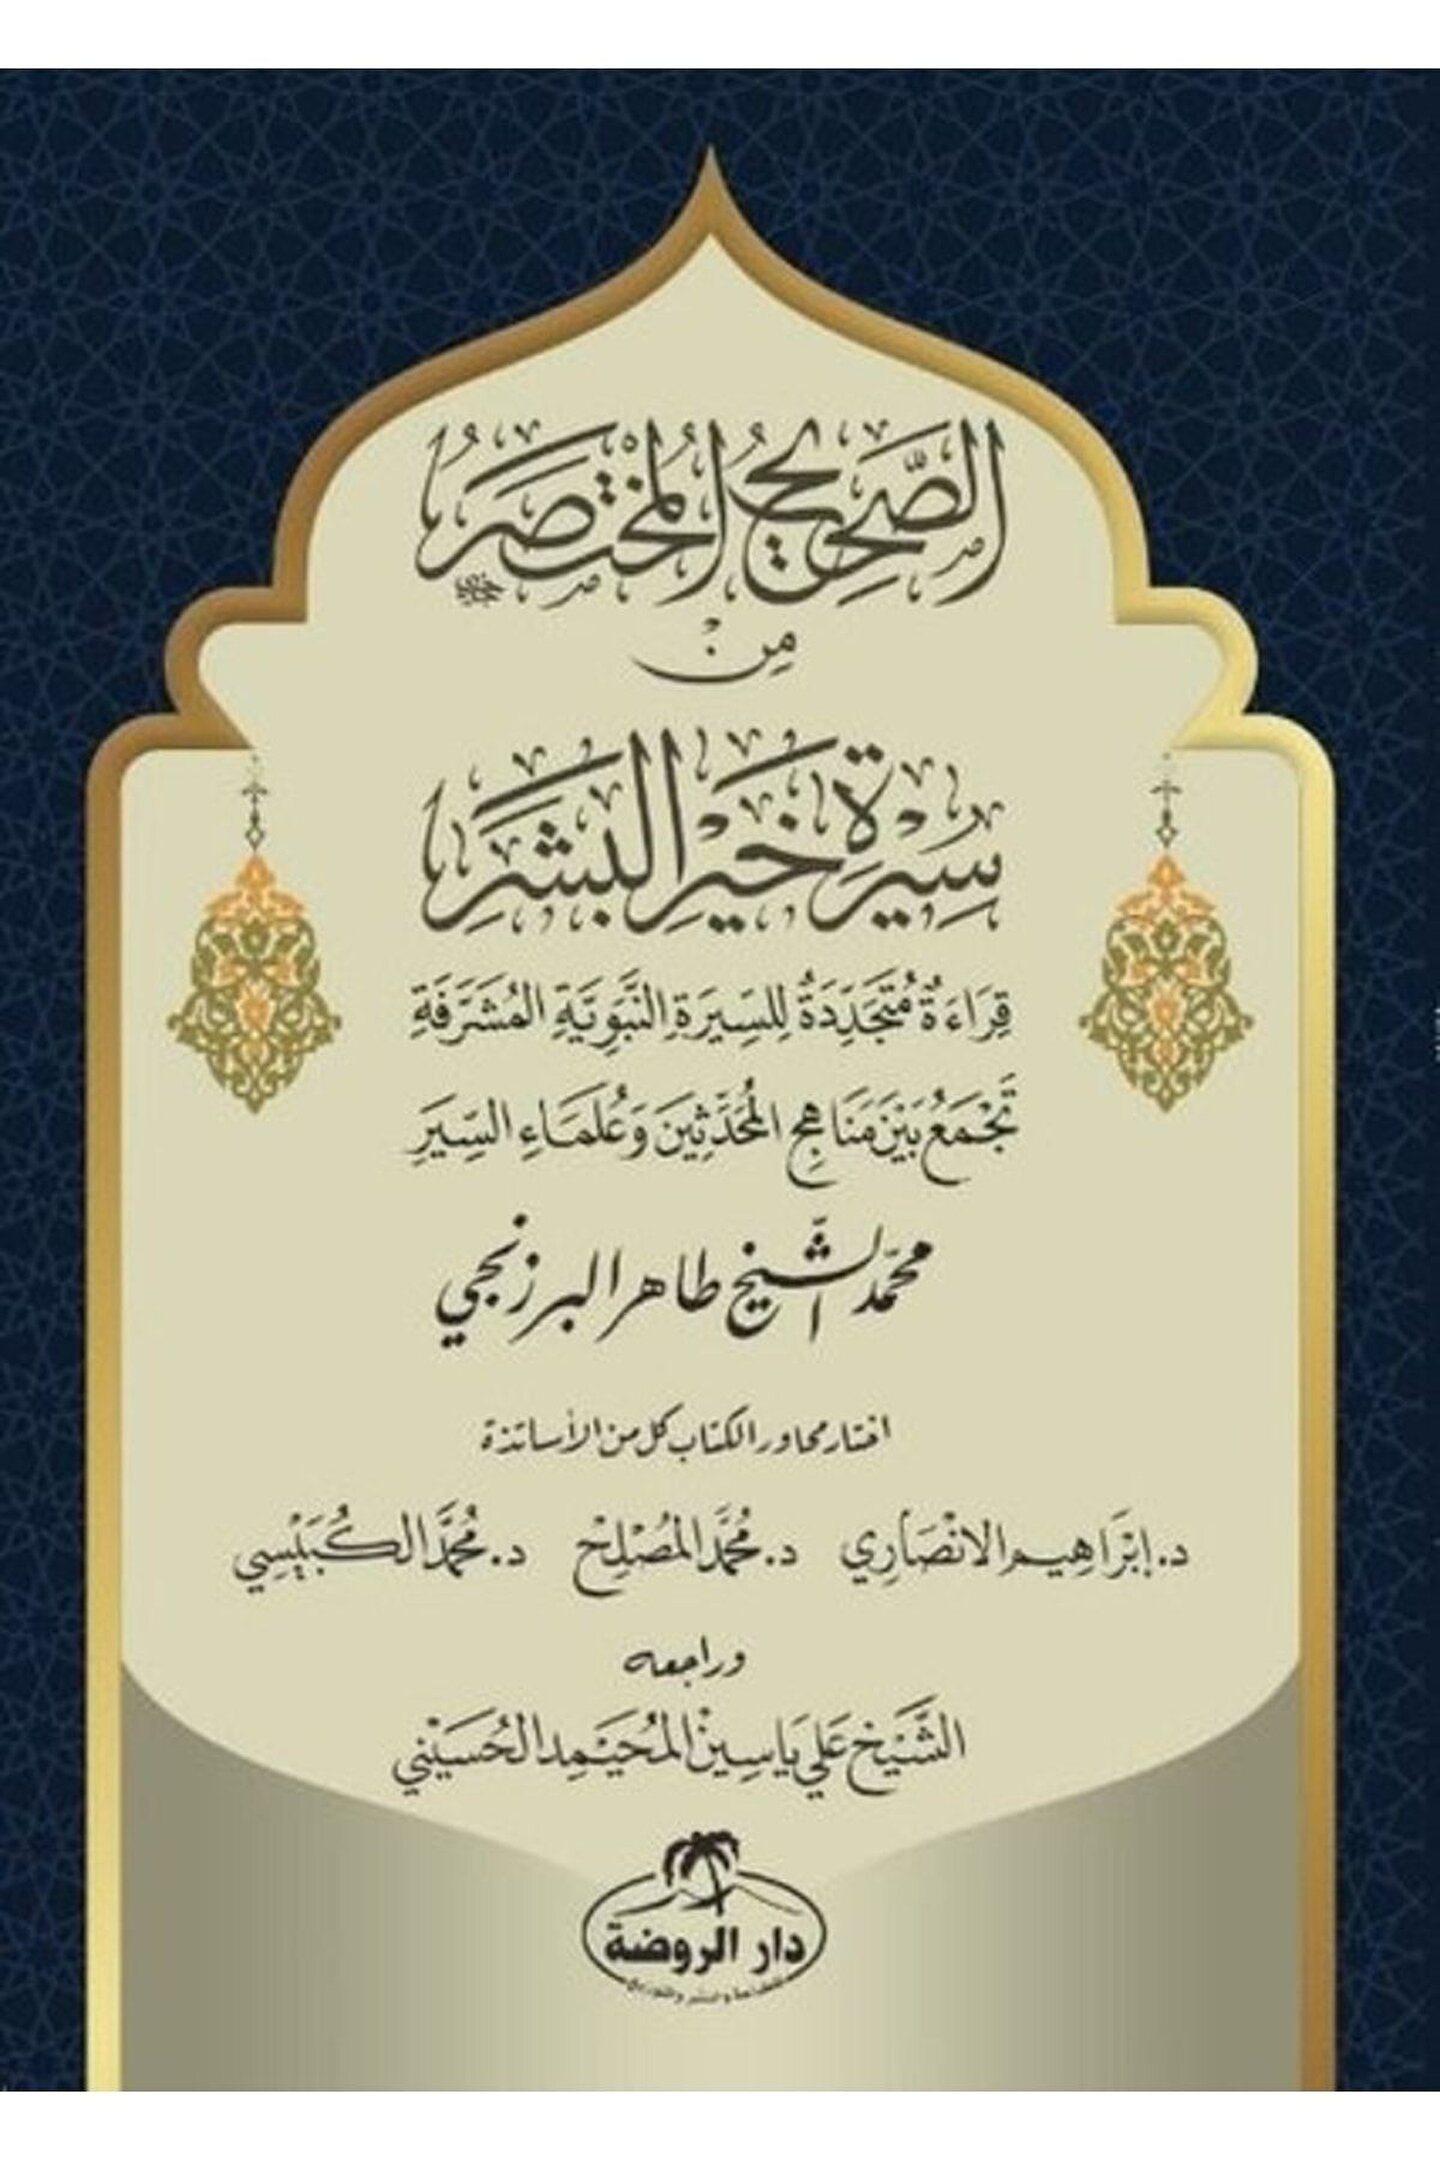 الصَّحِيحُ المُخْتَصَرُ
مِنْ
سِيرَةِ خَيْرِ البَشَرِ
قِرَاءَةٌ مُتَجَدِّدَةٌ لِلسِّيرَةِ النَّبَوِيَّةِ المُشَرَّفَةِ
تَجْمَعُ بَيْنَ مَنَاهِجِ المُحَدِّثِينَ وَعُلَمَاءِ السِّيَرِ
محمّد الشّيخ طاهر البرزنجي
اختار محاور الكتاب كل من الأساتذة
د. إبْرَاهِيم الانْصَارِي د. مُحَمَّد المُصْلِح د. مُحَمَّد الكُبَيْسِي
وراجعه
الشَّيْخ عَلي يَاسِين المُحَيْمِد الحُسَيْني
دار الروضة
للطباعة والنشر والتوزيع